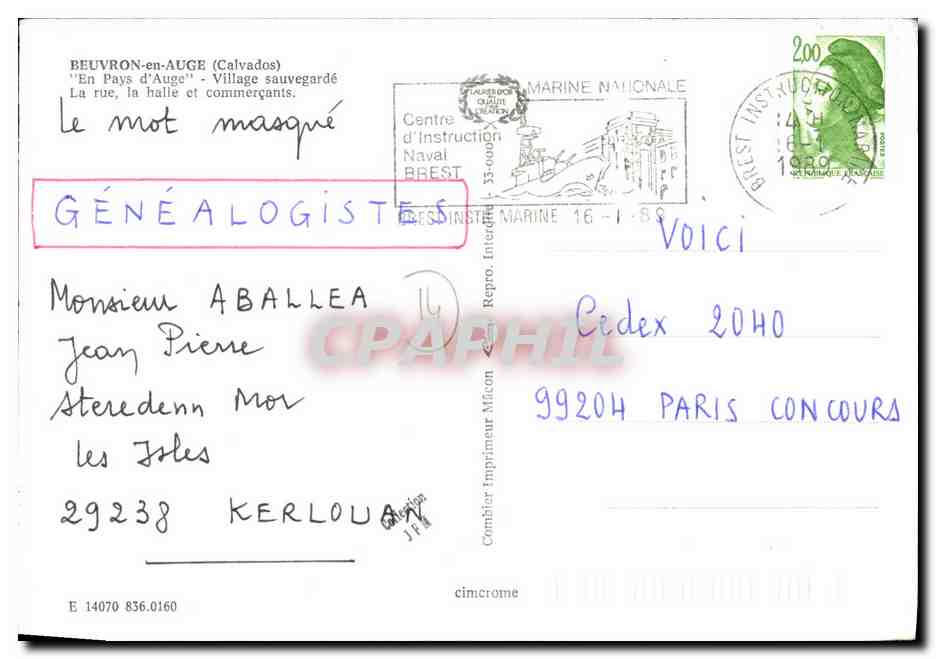 BEUVRON-en-AUGE (Calvados)
"En Pays d'Auge" - Village sauvegardé
La rue, la halle et commerçants.
Le mot masqué
GÉNÉALOGISTES
Monsieur ABALLEA
Jean Pierre
Steredenn Mor
les Isles
29238 KERLOUAN
E 14070 836.0160
14
Collection
JFM
Combier Imprimeur Mâcon
Repro. Interdite - 33-000
cimcrome
LAURIER D'OR
QUALITÉ
CRÉATION
MARINE NATIONALE
Centre
d'Instruction
Naval
BREST
BREST INST MARINE 16-1-89
BREST INSTRUCTION MARINE
14 H
16-1
1989
2,00
POSTES
REPUBLIQUE FRANÇAISE
VOICI
Cedex 2040
99204 PARIS CONCOURS
CPAPHIL